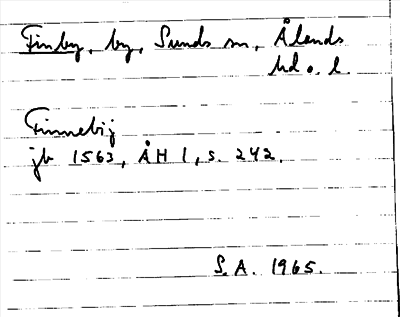 Finby, by, Sunds sn, Ålands
hd o. l.
Finnebij
jb 1563, ÅH 1, s. 242.
S.A. 1965.